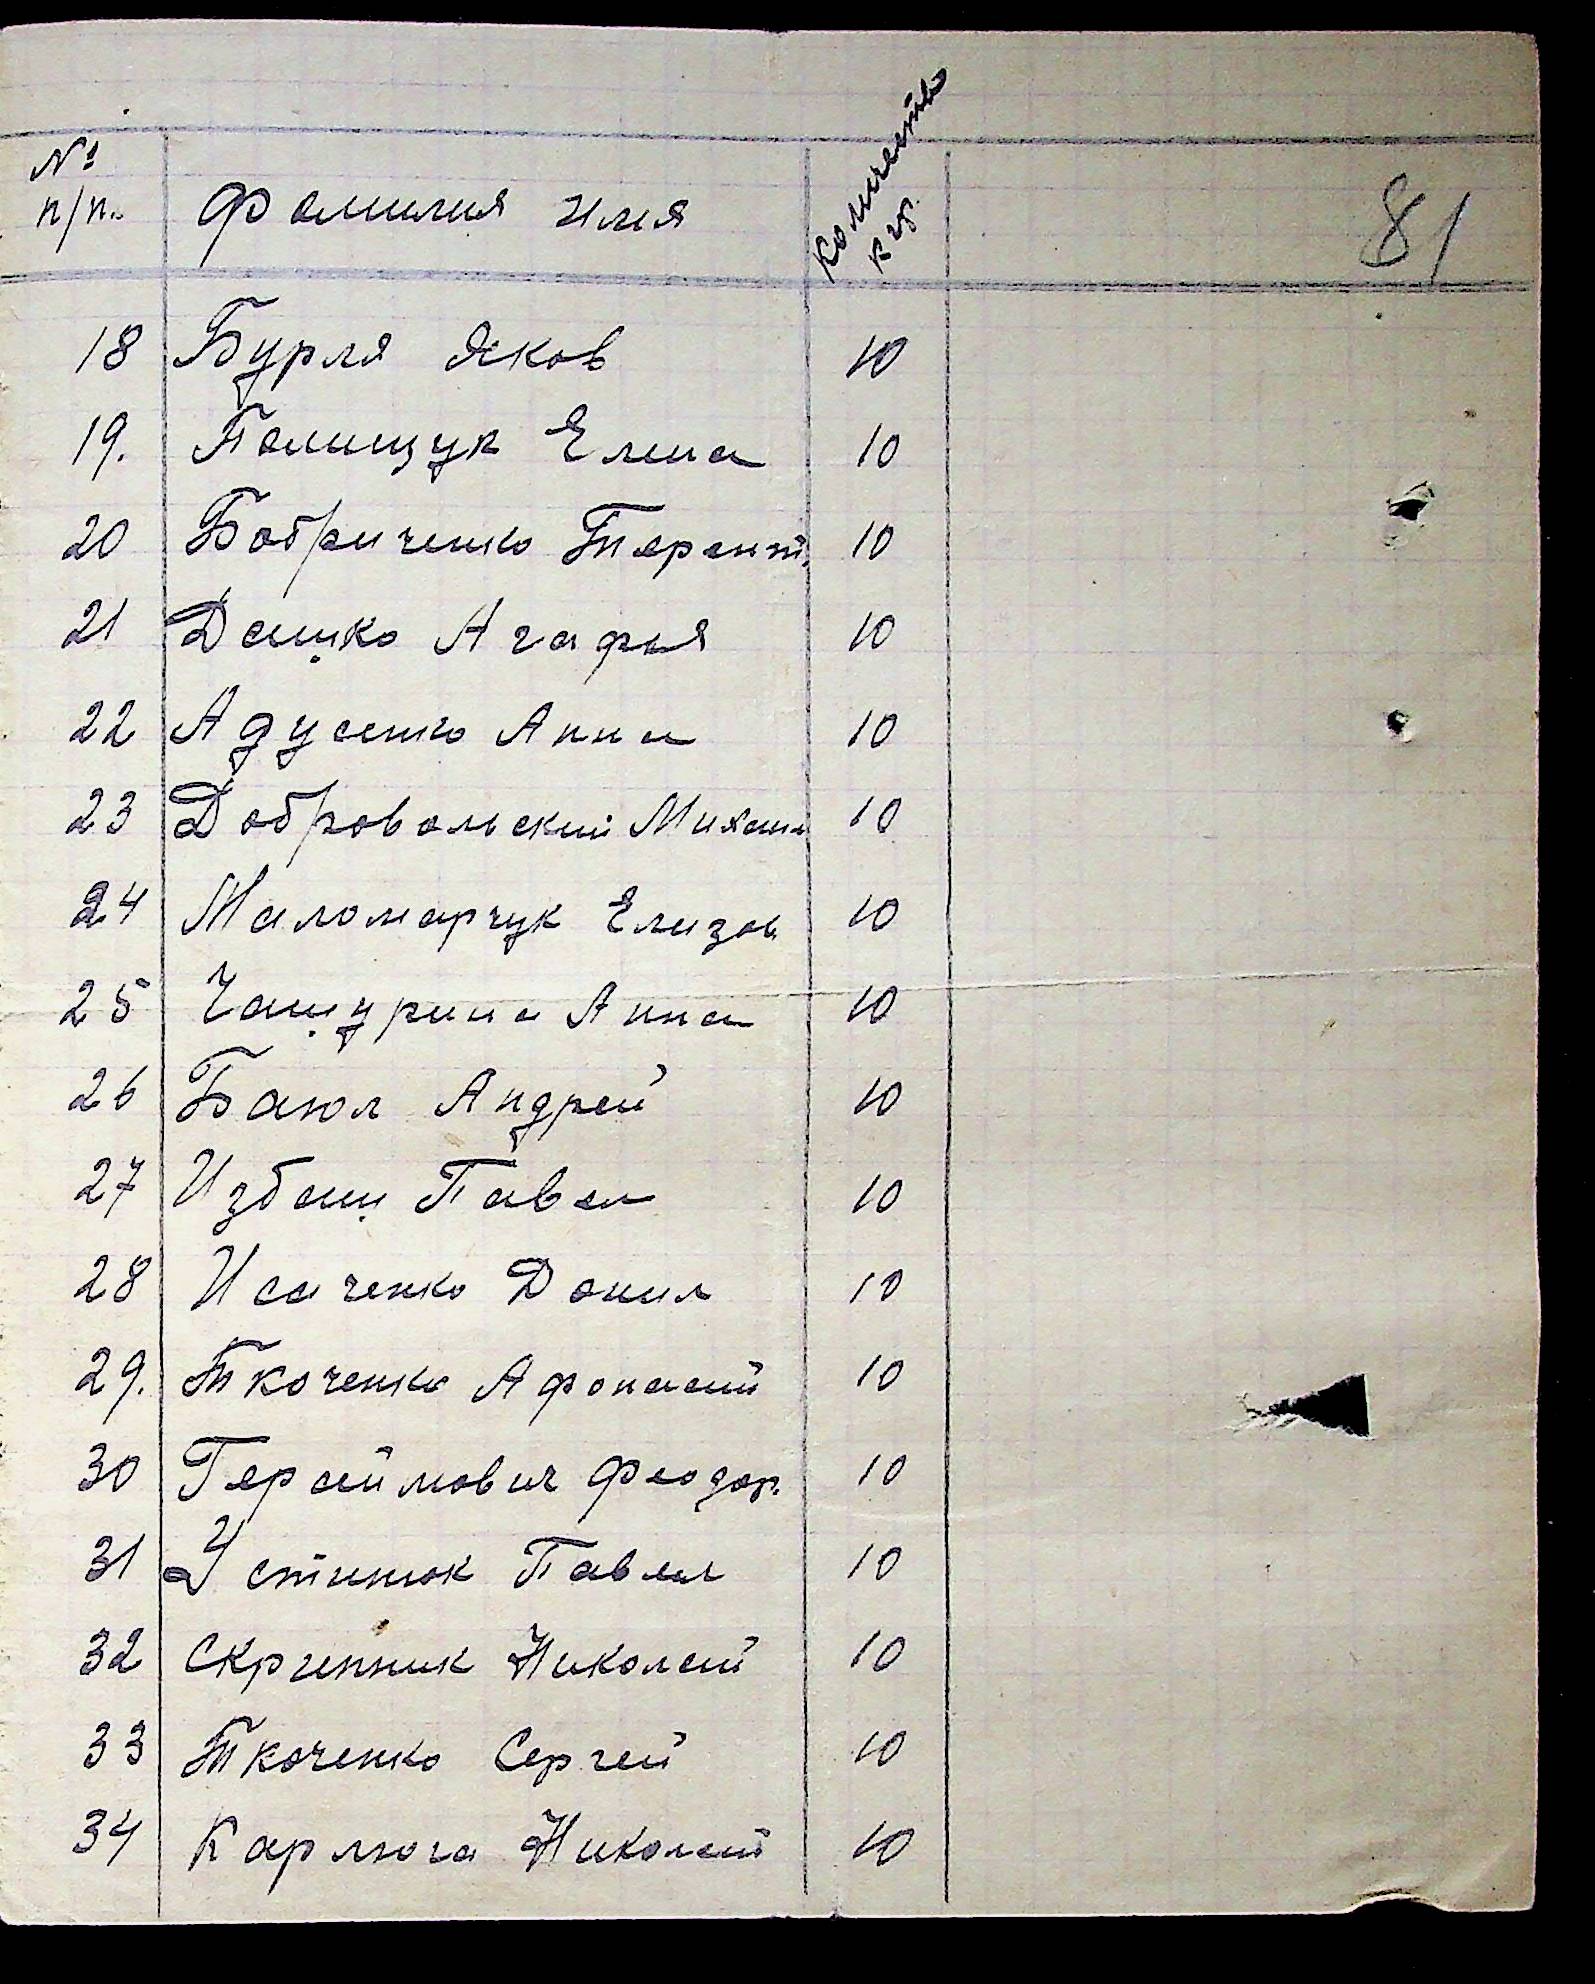 № п/п. Фамилия имя Количество к гр. 81
18 Бурля Яков 10
19. Полищук Елена 10
20 Бобриченко Терент. 10
21 Дашко Агафья 10
22 Адусенко Анна 10
23 Добровольский Михаил 10
24 Маломарчук Елизав 10
25 Чашурина Анна 10
26 Баюл Андрей 10
27 Избаш Павел 10
28 Исаченко Данил 10
29. Ткаченко Афонасий 10
30 Герасимович Феодор. 10
31 Устинюк Павел 10
32 Скрипник Николай 10
33 Ткаченко Сергей 10
34 Карлюга Николай 10